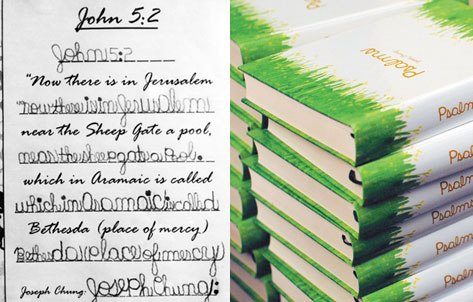 John 5:2
John 5:2
"Now there is in Jerusalem
"now there is in Jerusalem
near the Sheep Gate a pool,
near the sheep gate a Pool.
which in Aramaic is called
which in Aramaic is called
Bethesda (place of mercy)
Bethesda (place of mercy)
Joseph Chung: Joseph Chung:
Psalms
Psalms
Psalms
Psalms
Psalms
Psalms